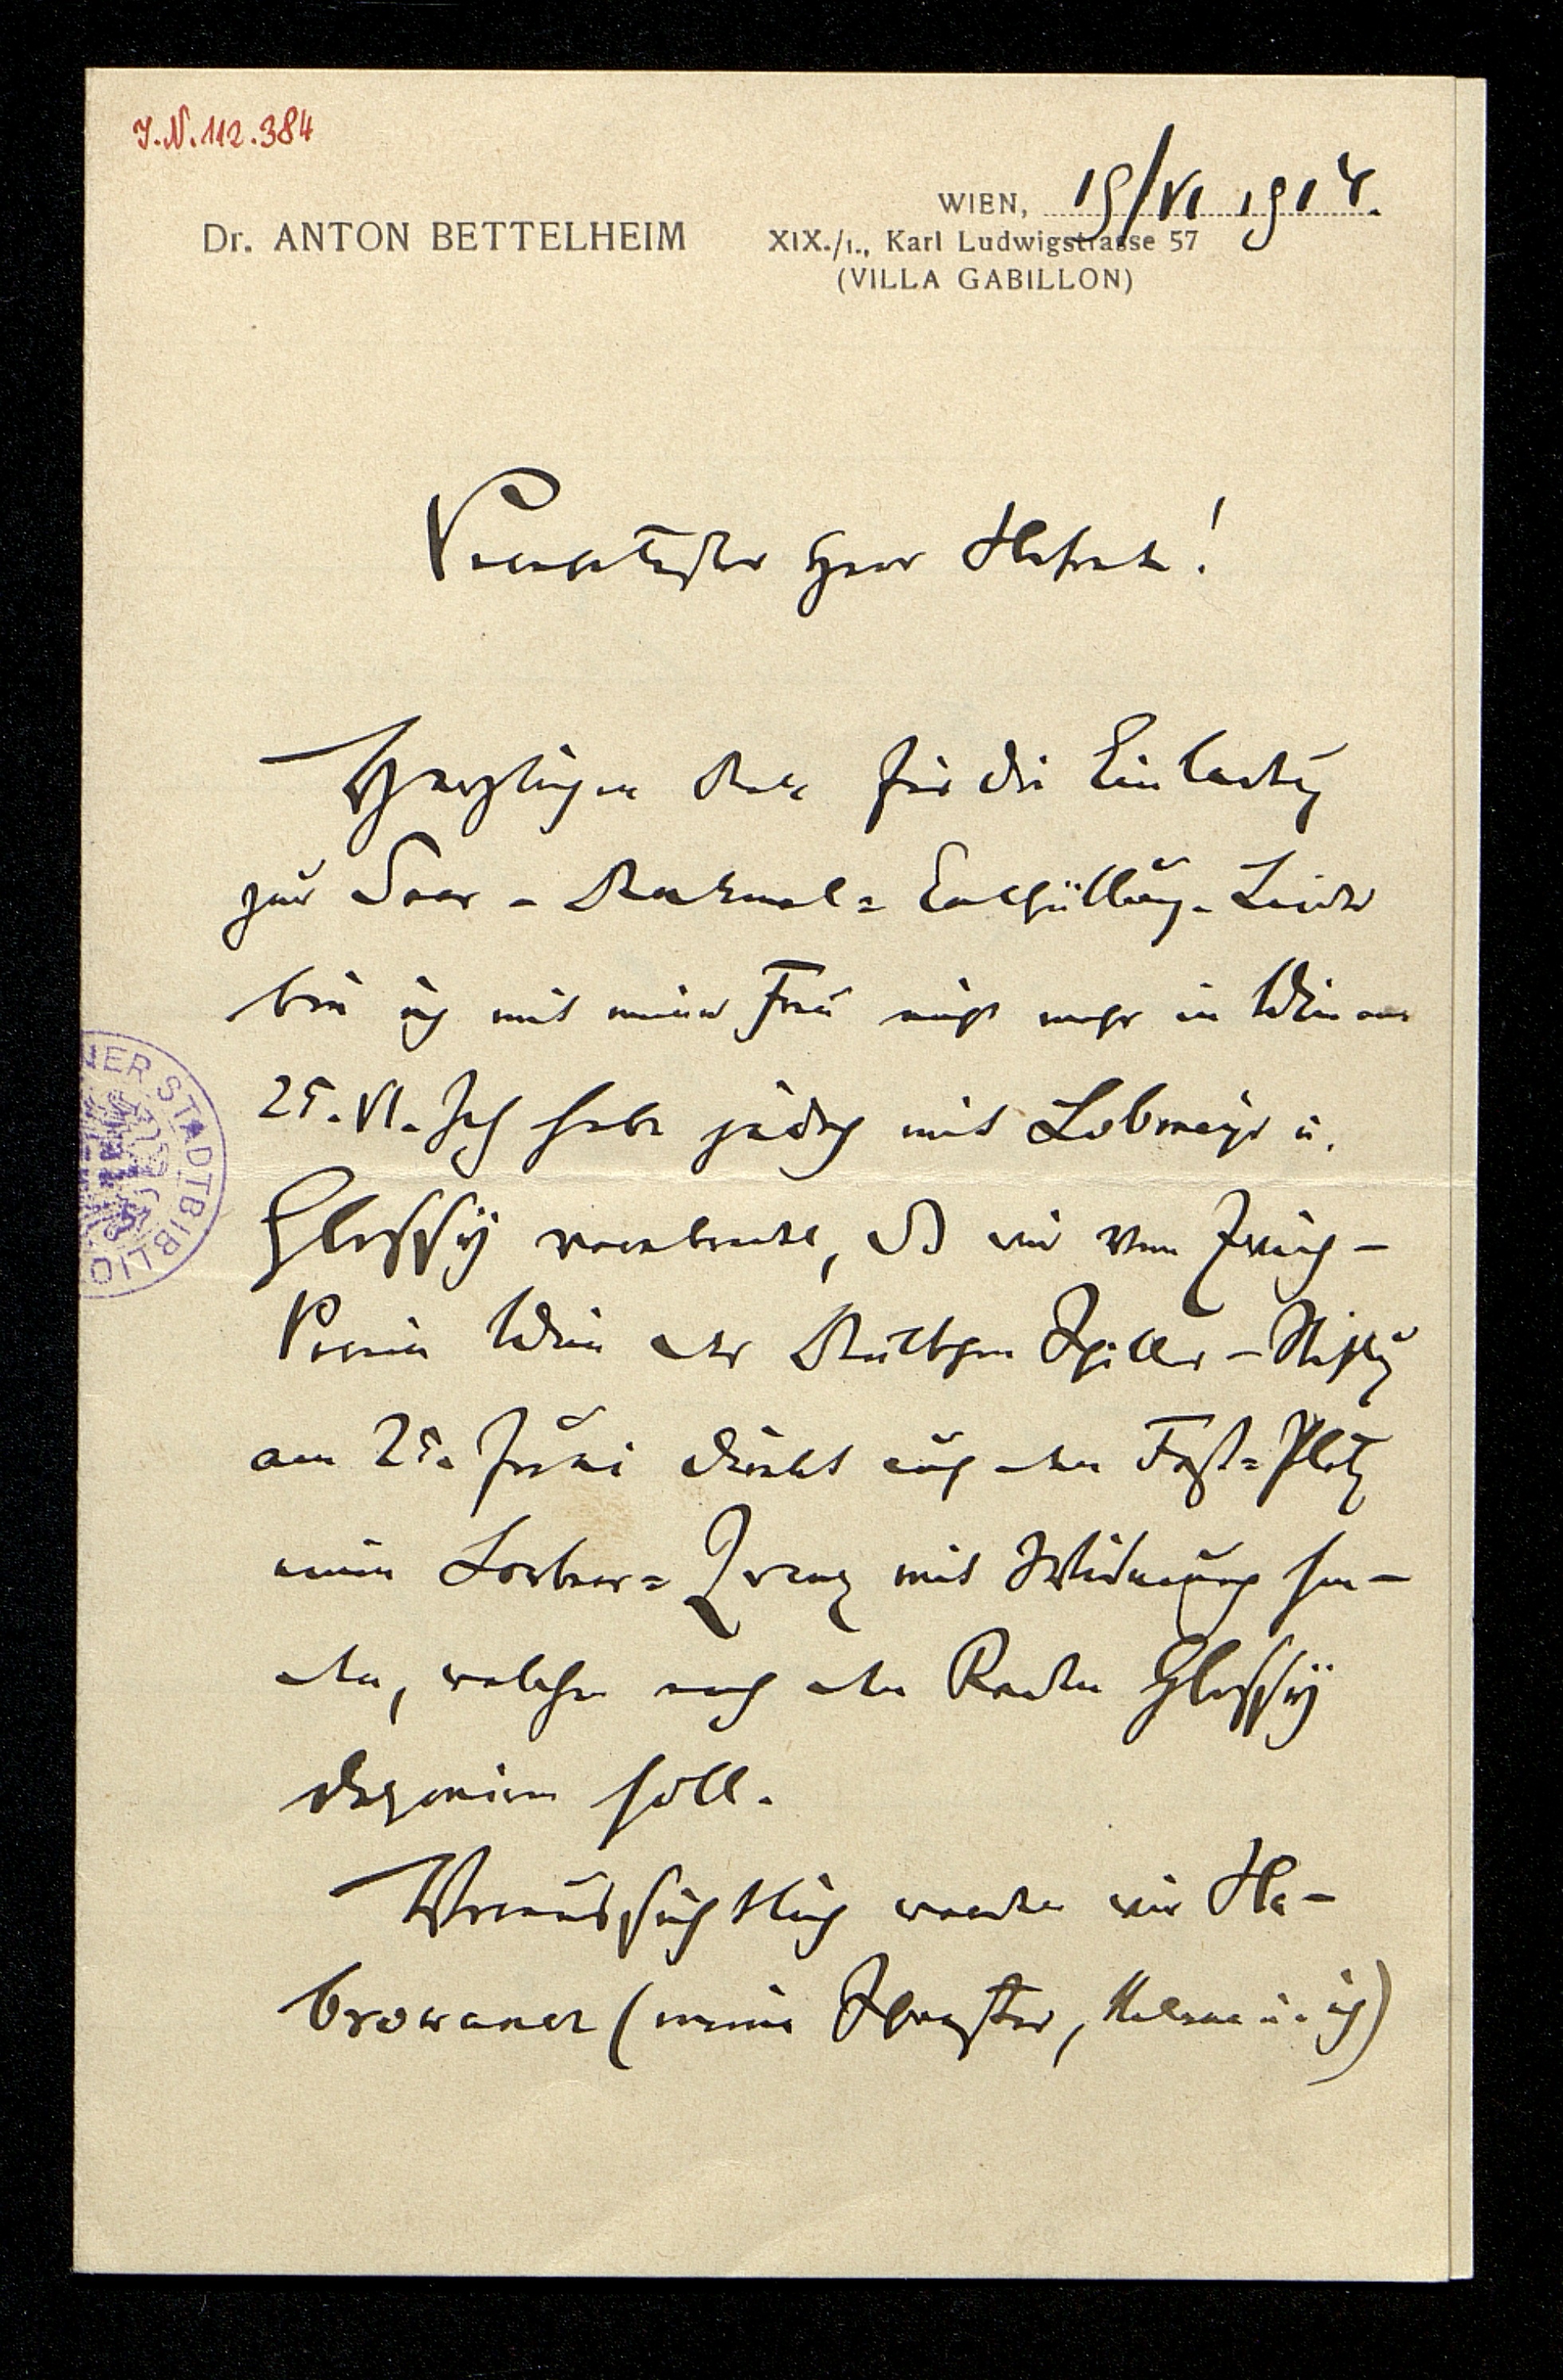 I.N. 112.384
WIEN, 19/VI 1914.
Dr. ANTON BETTELHEIM
XIX./1., Karl Ludwigstrasse 57
(VILLA GABILLON)
Verehrtester Herr Hofrath!
Herzlichen Dank für die Einladung
zur Saar-Denkmal=Enthüllung. Leider
bin ich mit meiner Frau nicht mehr in Wien am
25. VI. Ich habe jedoch mit Lobmeyr u.
Glossy verabredet, dß wir vom Zweig-
Verein Wien der Deutschen Schiller-Stiftung
am 25. Juni direkt auf den Fest=Platz
einen Lorbeer=Kranz mit Widmung sen-
den, welchen nach den Reden Glossy
deponiren soll.
Voraussichtlich werden wir Ha-
browaner (meine Schwester, Helene u. ich)
NER STADTBIBLIO